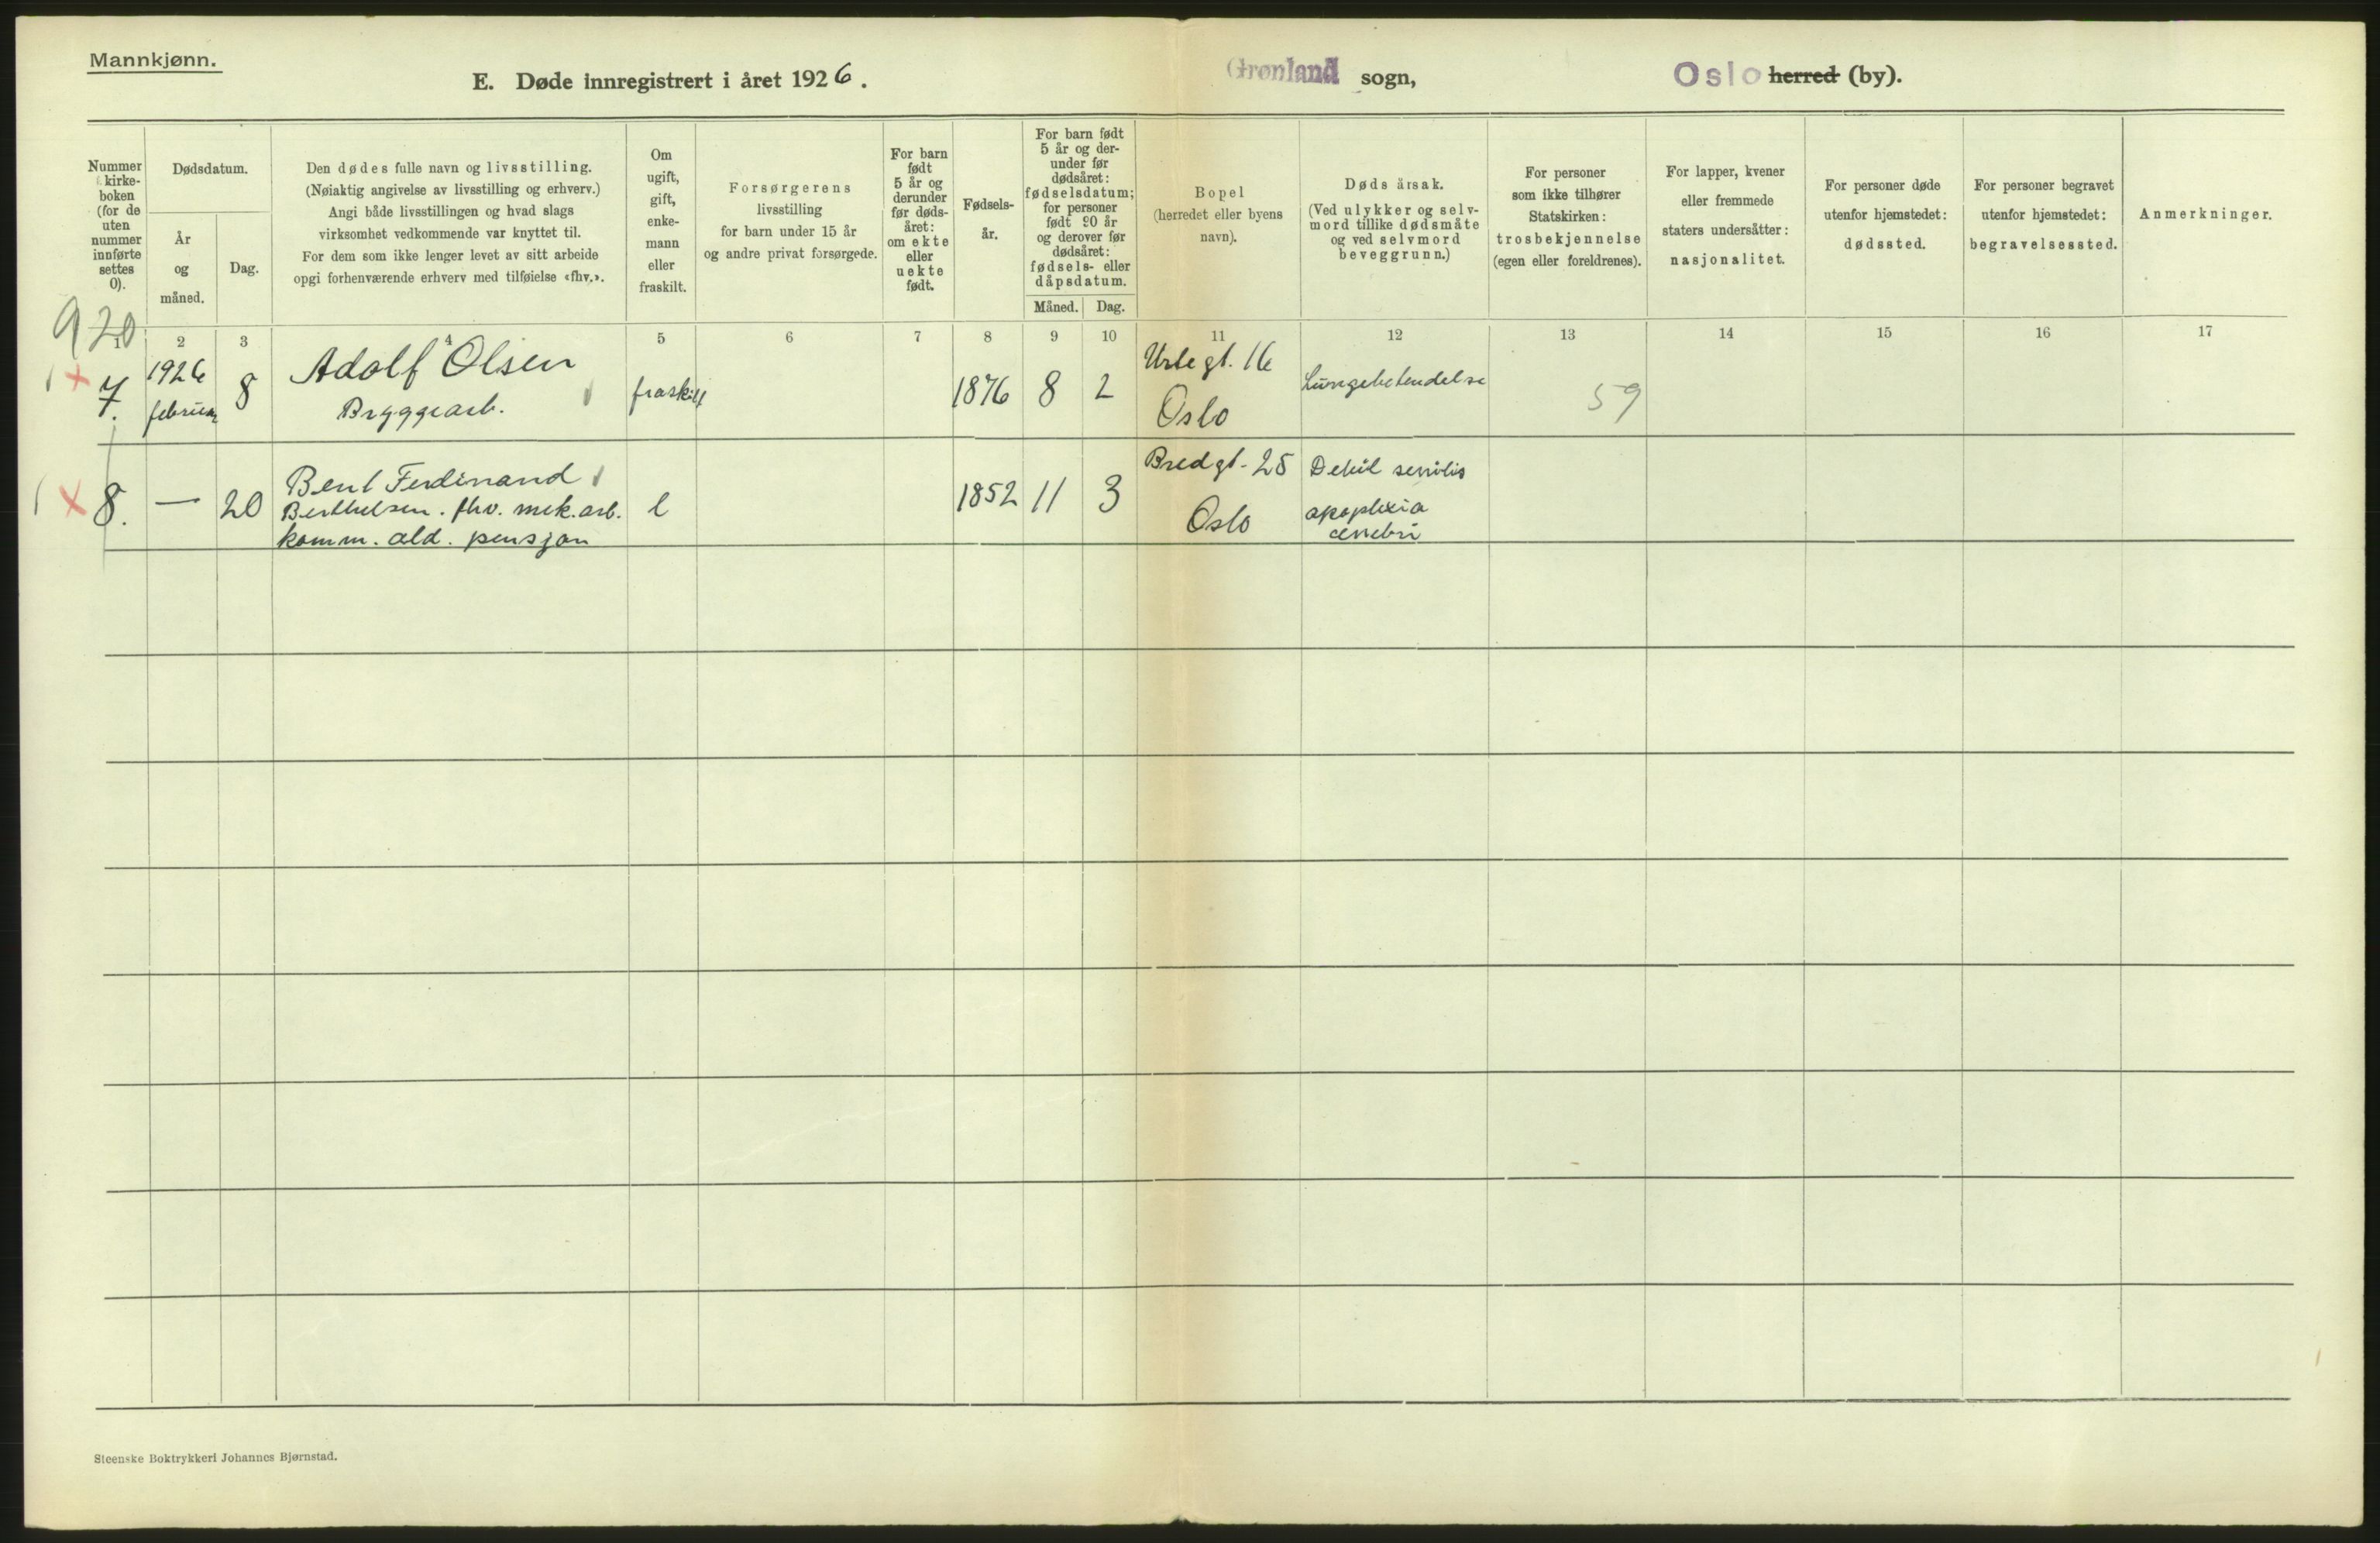 Mannkjønn.
E. Døde innregistrert i året 1926.
Grønland sogn,
Oslo herred (by).
Nummer
i kirke-
boken
(for de
uten
nummer
innførte
settes
0).
Dødsdatum.
År
og
måned.
Dag.
Den dødes fulle navn og livsstilling.
(Nøiaktig angivelse av livsstilling og erhverv.)
Angi både livsstillingen og hvad slags
virksomhet vedkommende var knyttet til.
For dem som ikke lenger levet av sitt arbeide
opgi forhenværende erhverv med tilføielse «fhv.».
Om
ugift,
gift,
enke-
mann
eller
fraskilt.
Forsørgerens
livsstilling
for barn under 15 år
og andre privat forsørgede.
For barn
født
5 år og
derunder
før døds-
året:
om ekte
eller
uekte
født.
Fødsels-
år.
For barn født
5 år og der-
under før
dødsåret:
fødselsdatum;
for personer
født 90 år
og derover før
dødsåret:
fødsels- eller
dåpsdatum.
Måned. Dag.
Bopel
(herredet eller byens
navn).
Døds årsak.
(Ved ulykker og selv-
mord tillike dødsmåte
og ved selvmord
beveggrunn.)
For personer
som ikke tilhører
Statskirken:
trosbekjennelse
(egen eller foreldrenes).
For lapper, kvener
eller fremmede
staters undersåtter:
nasjonalitet.
For personer døde
utenfor hjemstedet:
dødssted.
For personer begravet
utenfor hjemstedet:
begravelsessted.
Anmerkninger.
920
1 2 3 4 5 6 7 8 9 10 11 12 13 14 15 16 17
7.
1926
februar
8
Adolf Olsen
Bryggearb.
fraskilt
1876 8 2
Urtegt. 16
Oslo
Lungebetendelse
59
8. — 20
Bent Ferdinand
Berthelsen. fhv. mek. arb.
komm. ald. pensjon
1852 11 3
Bredgt. 25
Oslo
Debil senilis
apoplexia
cerebri
Steenske Boktrykkeri Johannes Bjørnstad.